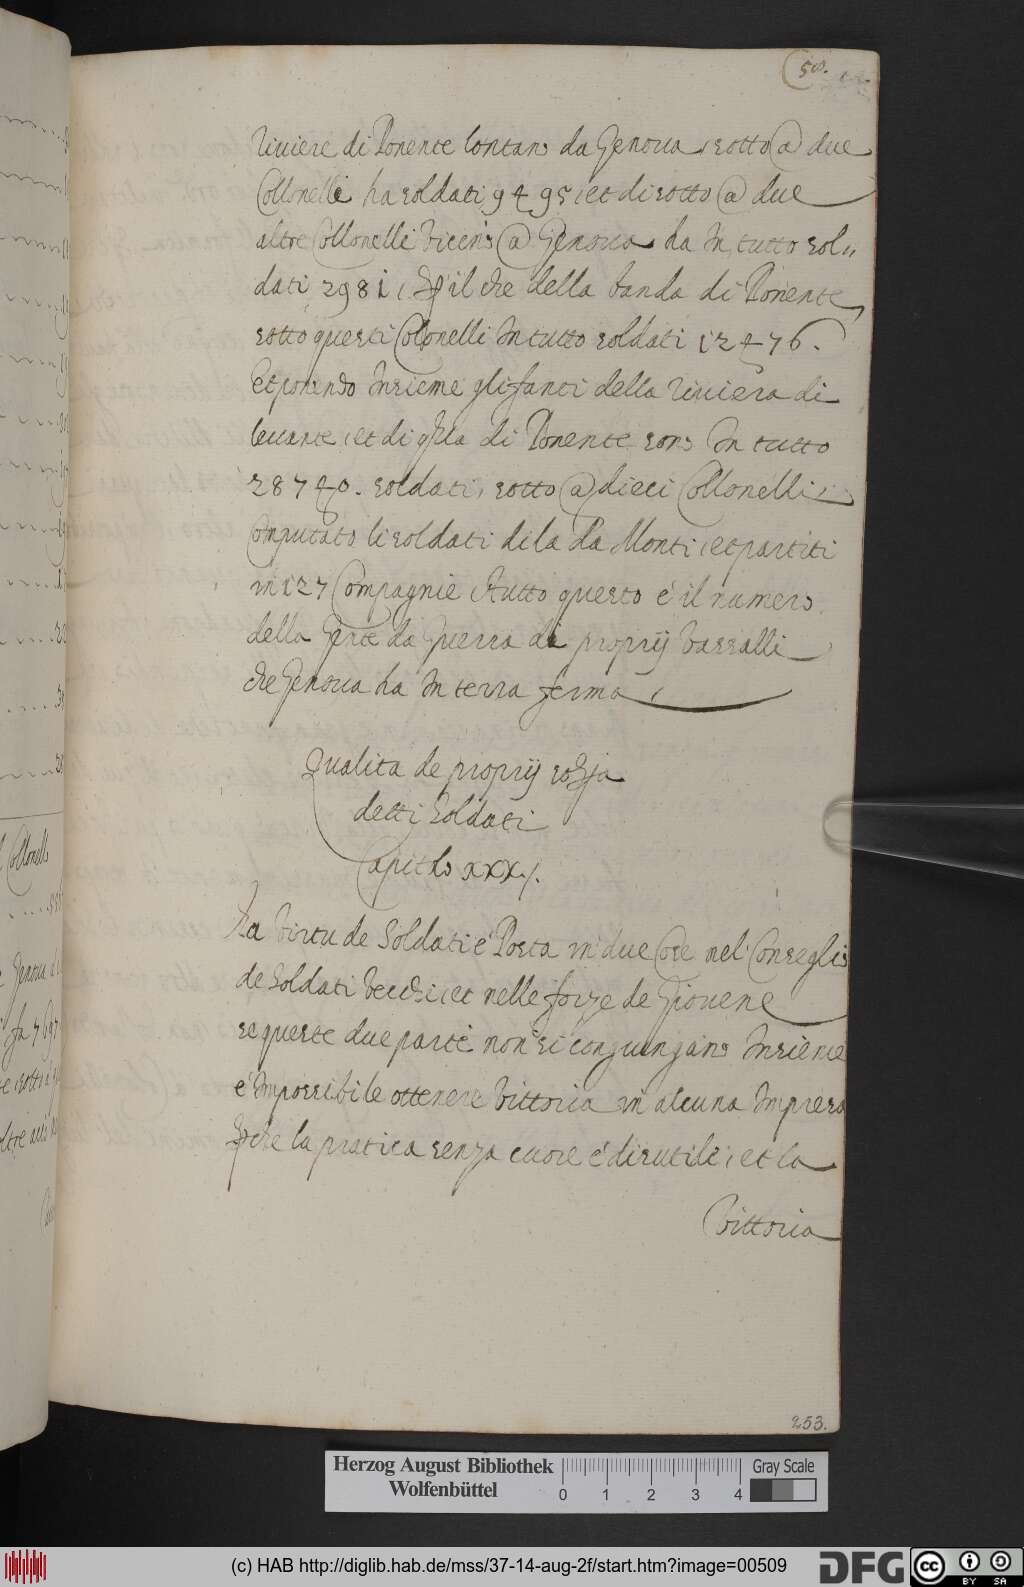 58.
Riviere di Ponente lontano da Genova, sotto @ due
Collonelli ha soldati 9495, et di sotto @ due
altre Collonelli vicini @ Genova da In tutto sol„
dati 2981, il che della banda di Ponente
sotto questi Colonelli In tutto soldati 12476.
Et ponendo Insieme gli fanti della riviera di
levante, et di qlla di Ponente sono In tutto
28740. soldati, sotto @ dieci Collonelli,
Computato li soldati di la da Monti, et partiti
in 127 Compagnie tutto questo é il numero
della gente da Guerra di proprij vassalli
che Genova ha In terra ferma,
Qualita de proprij
detti Soldati
Capitlo xxx.
La virtu de Soldati é Posta in due Cose nel Conseglio
de Soldati vecchi, et nelle forze de Giovene
se queste due parte non si conguingano Insieme
é Impossibile ottenere vittoria in alcuna Impresa
pche la pratica senza cuore é disutile, et la
Vittoria
253.
Herzog August Bibliothek
Wolfenbüttel
0 1 2 3 4
Gray Scale
(c) HAB http://diglib.hab.de/mss/37-14-aug-2f/start.htm?image=00509
DFG
cc BY SA